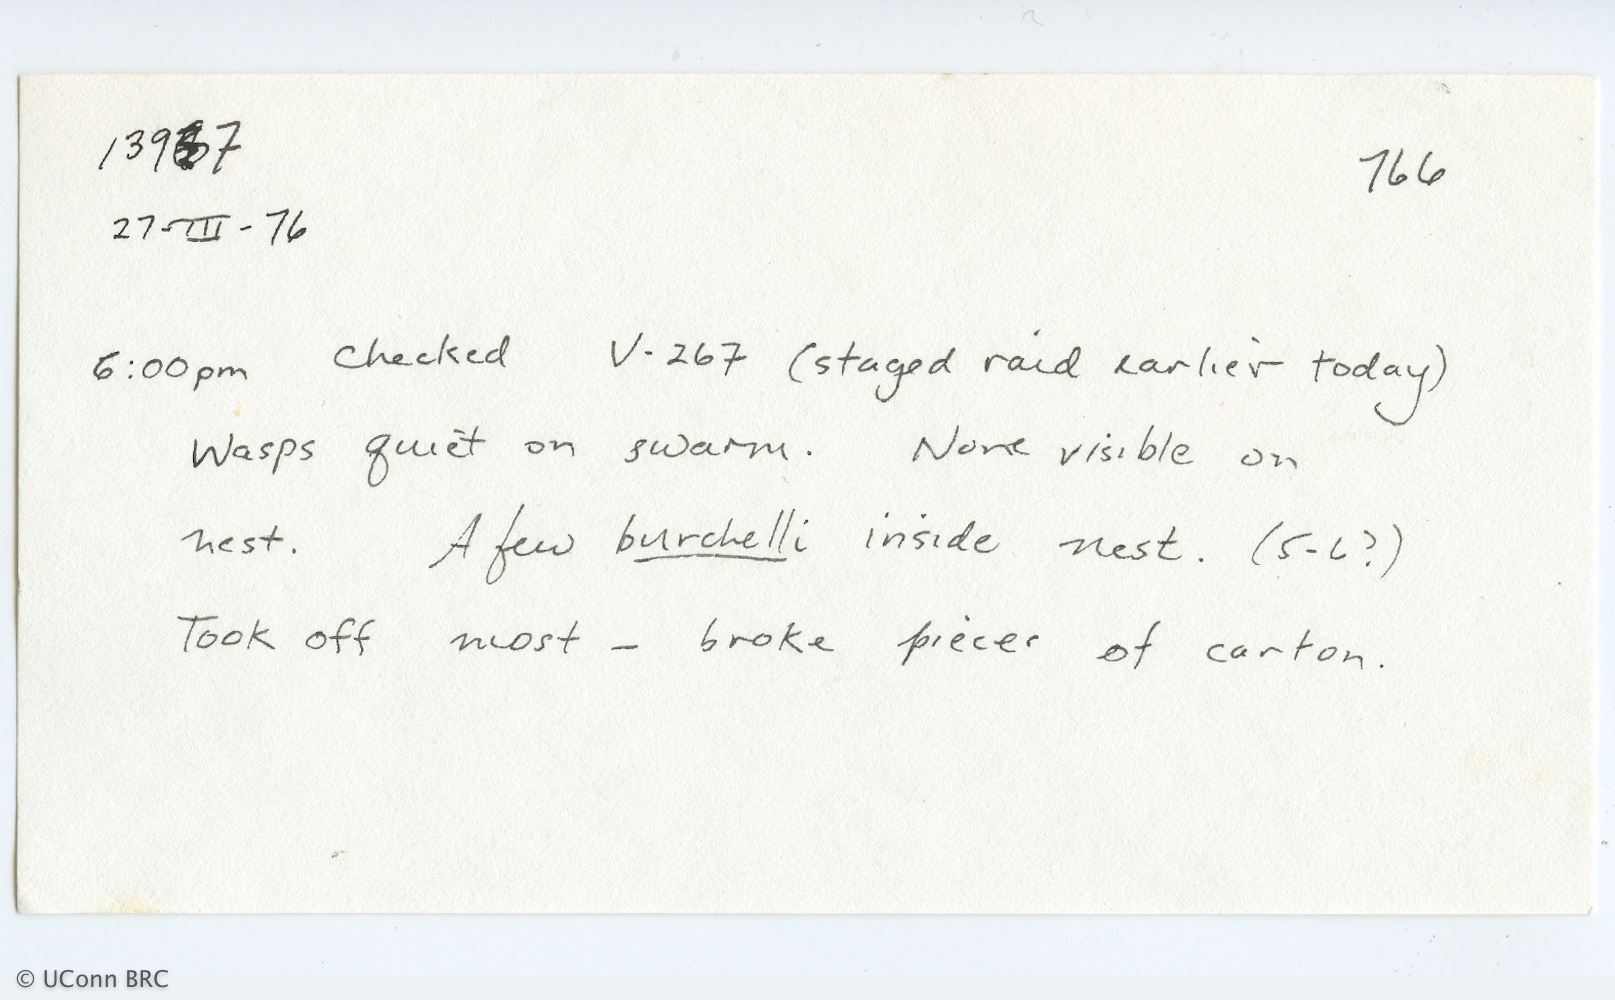 13967 766
27-III-76
6:00pm Checked V-267 (staged raid earlier today)
Wasps quiet on swarm. None visible on
nest. A few burchelli inside nest. (5-6?)
Took off most - broke pieces of carton.
© UConn BRC